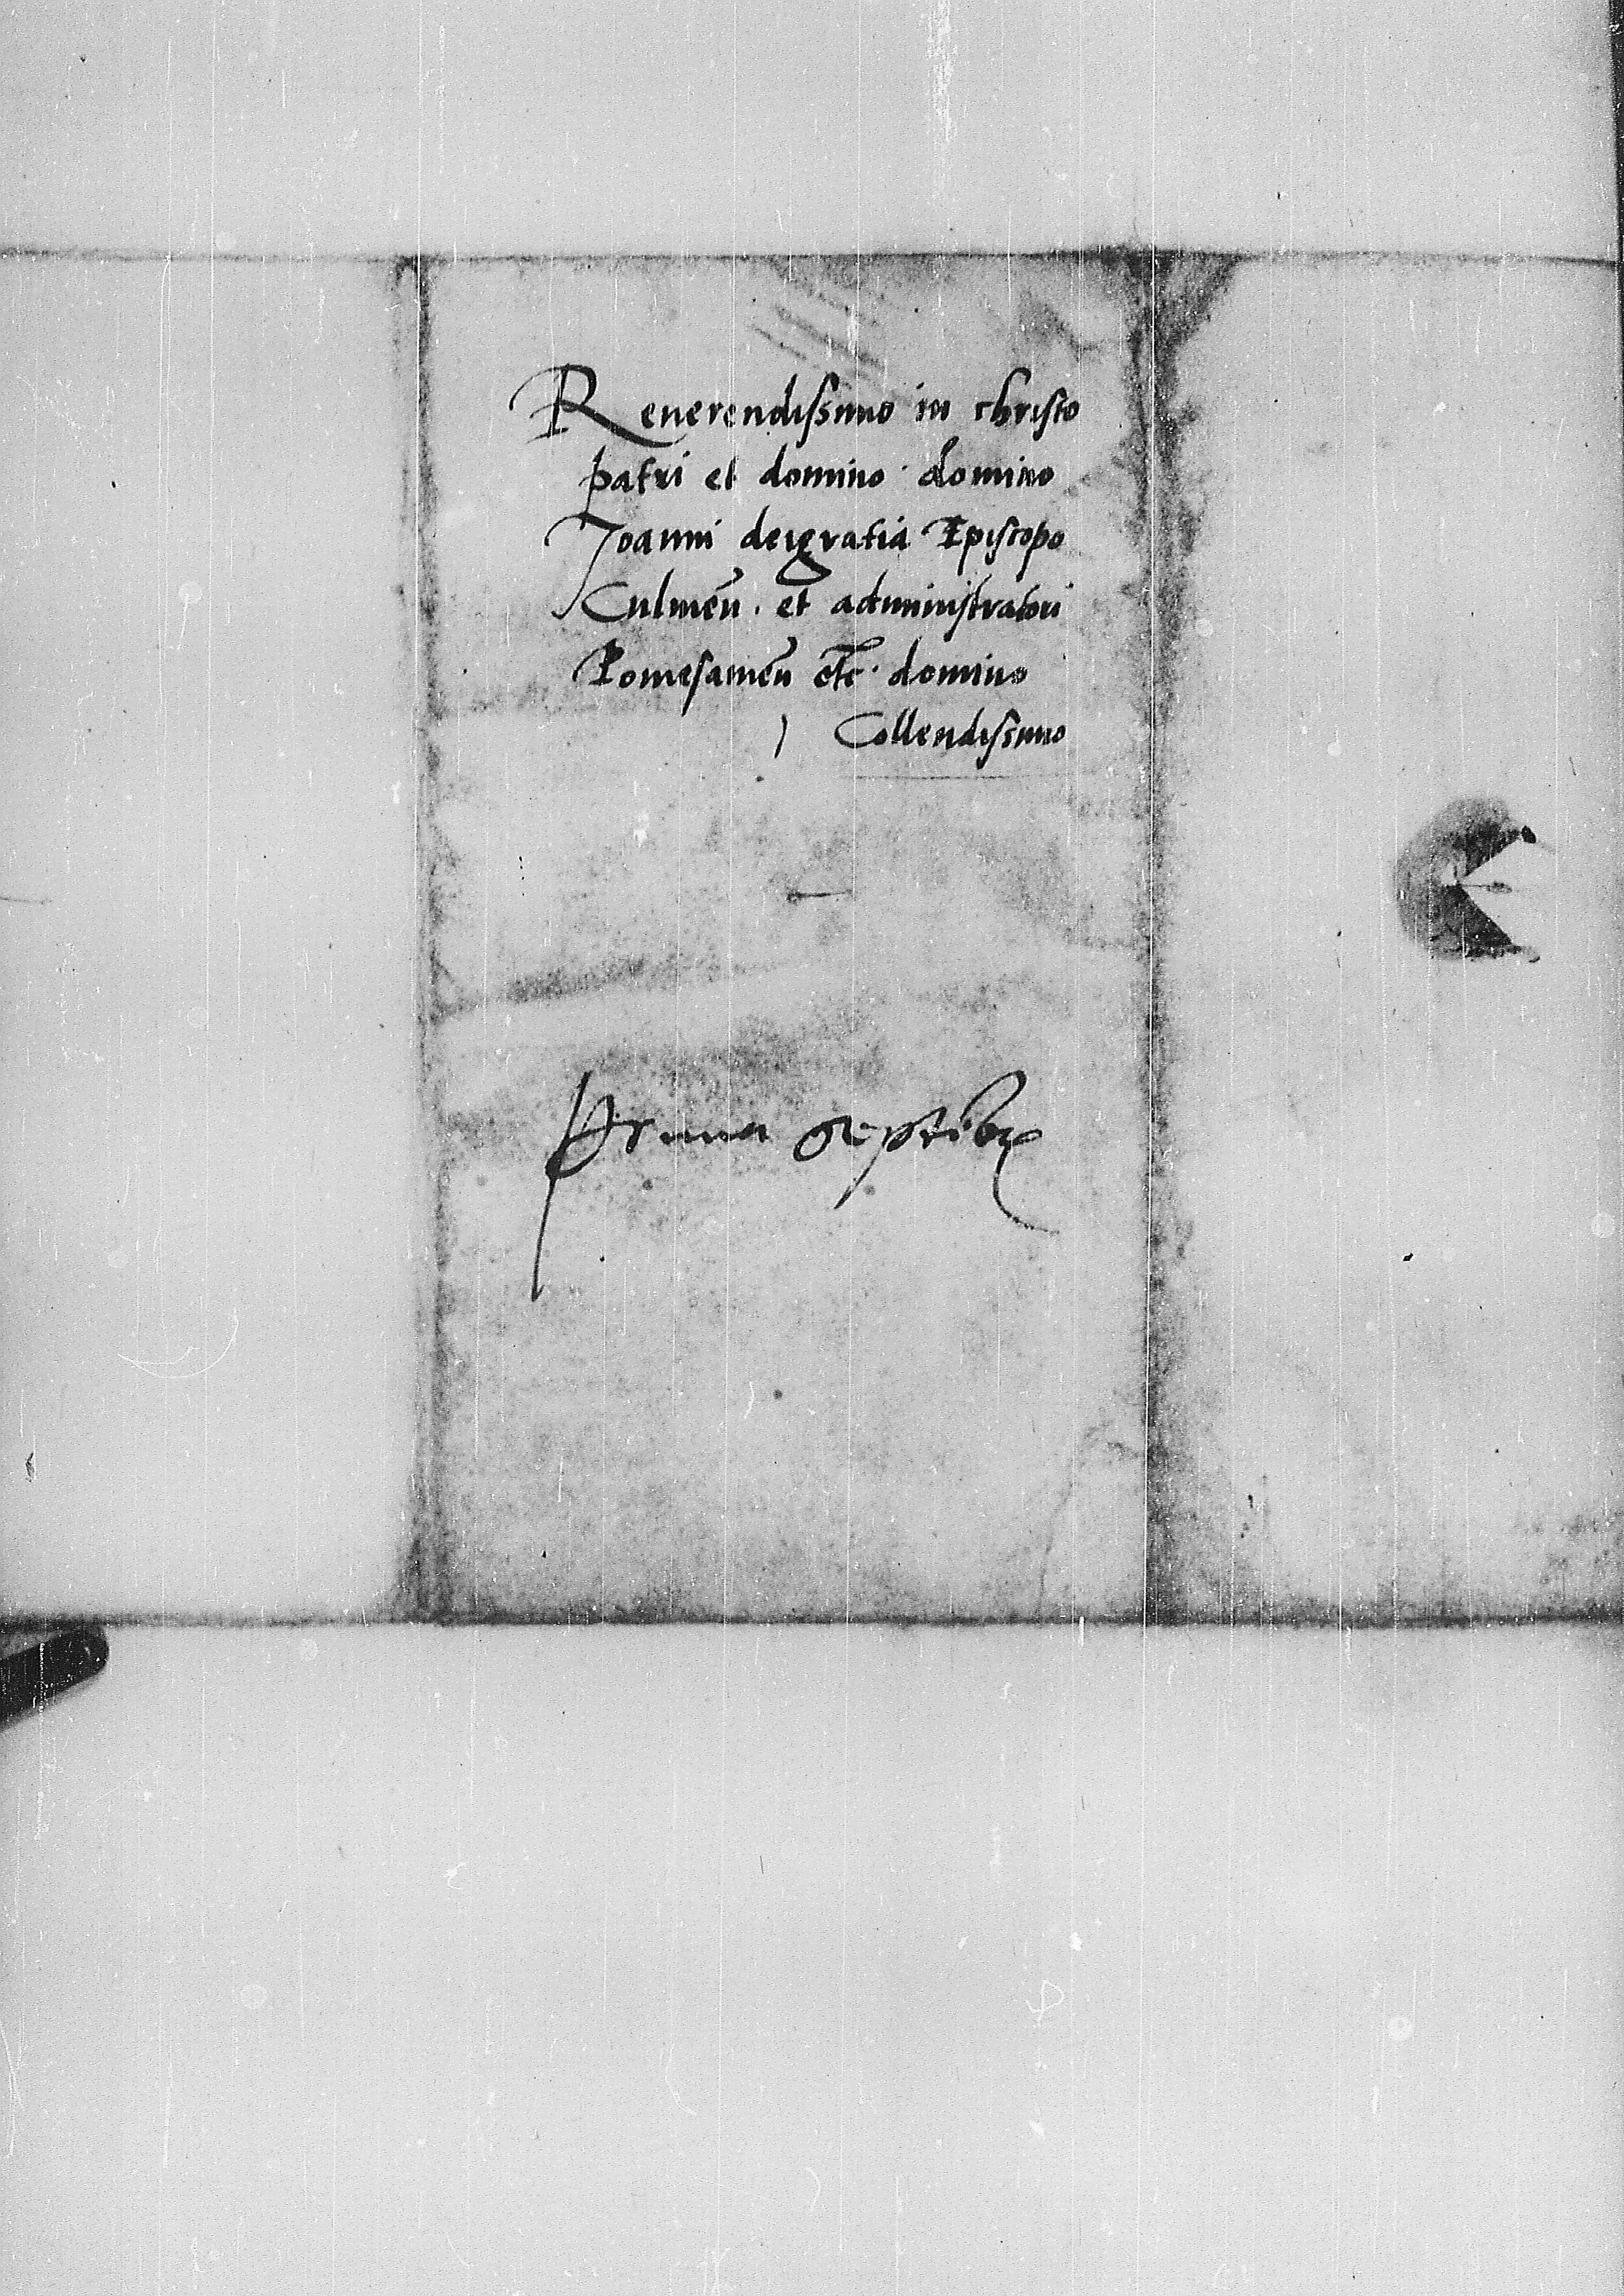 Reuerendissimo in christo
patri et domino domino
Joanni dei gratia Episcopo
Culmeñ. et administratori
Pomesanieñ etc. domino
Collendissimo
Prima Septembr